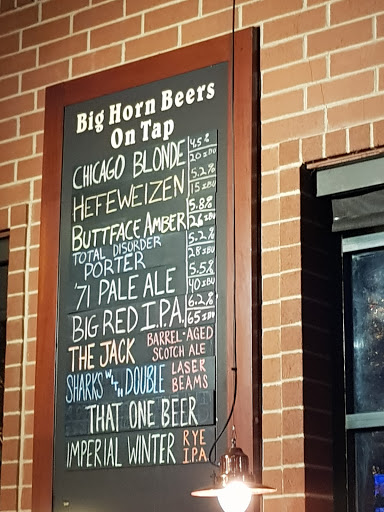 Big Horn Beers
On Tap
CHICAGO BLONDE 4.5% 20 IBU
HEFEWEIZEN 5.2% 15 IBU
BUTTFACE AMBER 5.8% 26 IBU
TOTAL DISORDER PORTER 5.2% 28 IBU
'71 PALE ALE 5.5% 40 IBU
BIG RED I.P.A. 6.2% 65 IBU
THE JACK BARREL-AGED SCOTCH ALE
SHARKS W/ DOUBLE LASER BEAMS
THAT ONE BEER
IMPERIAL WINTER RYE I.P.A.